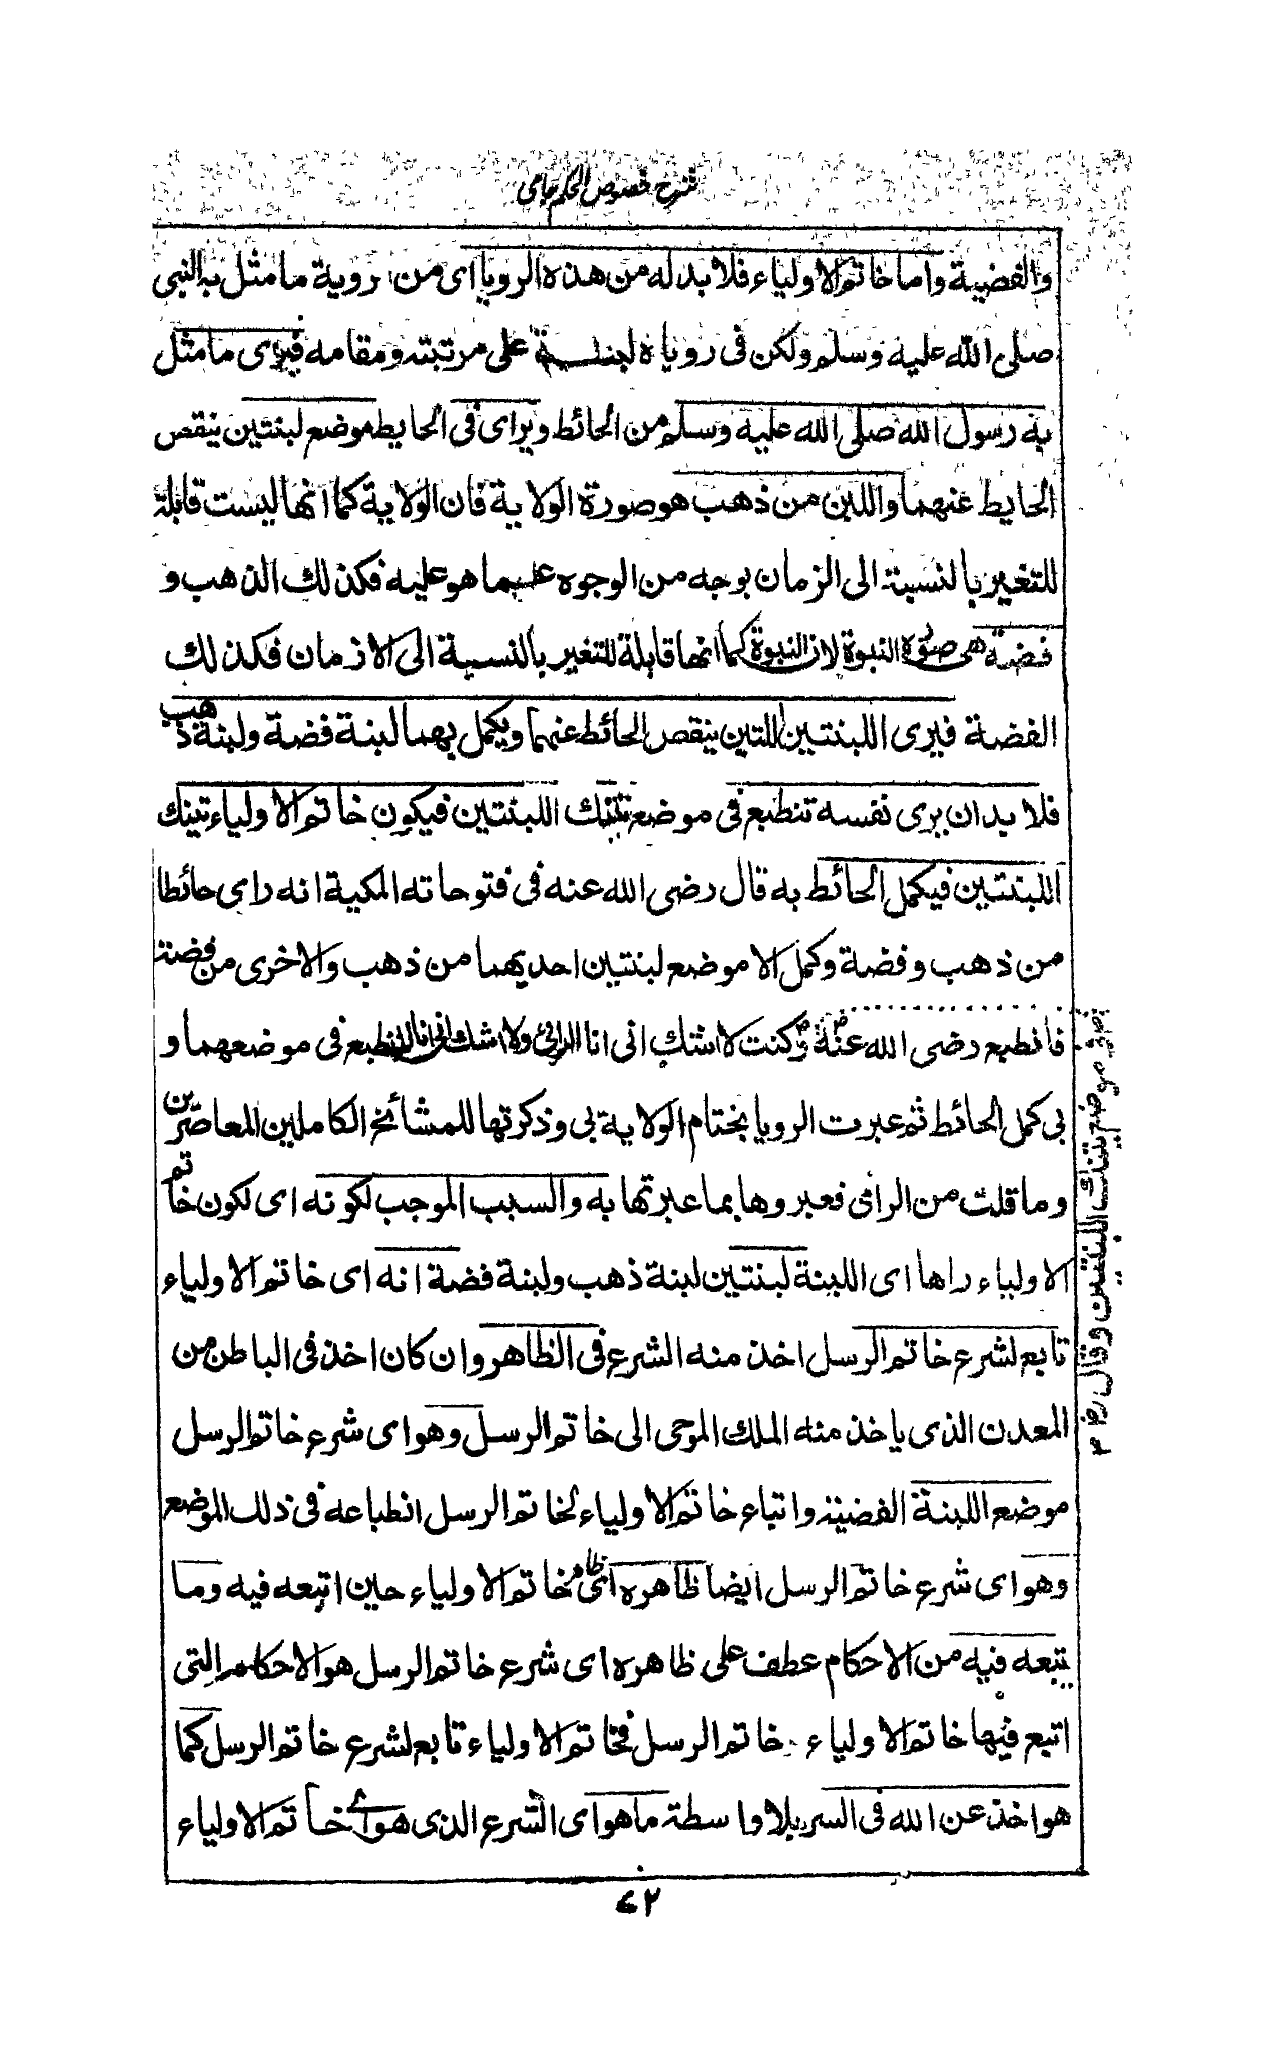 شرح فصوص الحکم جامی
والفضية واما خاتم الاولياء فلا بد له من هذه الرويا اى من روية ما مثل به النبى
صلى الله عليه وسلم ولكن فى روياه لبنة على مرتبته ومقامه فيرى ما مثل
به رسول الله صلى الله عليه وسلم من الحائط ويراى فى الحايط موضع لبنتين ينقص
الحايط عنهما واللبن من ذهب هو صورة الولاية فان الولاية كما انها ليست قابلة
للتغير بالنسبة الى الزمان بوجه من الوجوه عما هو عليه فكذلك الذهب و
فضة هى صورة النبوة لان النبوة كما انها قابلة للتغير بالنسبة الى الازمان فكذلك
الفضة فيرى اللبنتين اللتين ينقص الحائط عنهما ويكمل بهما لبنة فضة ولبنة ذهب
فلا بد ان يرى نفسه تنطبع فى موضع تينك اللبنتين فيكون خاتم الاولياء تينك
اللبنتين فيكمل الحائط به قال رضى الله عنه فى فتوحاته المكية انه راى حائطا
من ذهب وفضة وكمل الا موضع لبنتين احديهما من ذهب والاخرى من فضة
فانطبع رضى الله عنه وكنت لا اشك انى انا الرائى ولا اشك انى انا المنطبع فى موضعهما و
بى كمل الحائط ثم عبرت الرويا بختام الولاية بى وذكرتها للمشائخ الكاملين المعاصرين
وما قلت من الرائى فعبروها بما عبرتها به والسبب الموجب لكونه اى لكون خاتم
الاولياء راها اى اللبنة لبنتين لبنة ذهب ولبنة فضة انه اى خاتم الاولياء
تابع لشرع خاتم الرسل اخذ منه الشرع فى الظاهر وان كان اخذ فى الباطن من
المعدن الذى ياخذ منه الملك الموحى الى خاتم الرسل وهو اى شرع خاتم الرسل
موضع اللبنة الفضية واتباع خاتم الاولياء لخاتم الرسل انطباعه فى ذلك الموضع
وهو اى شرع خاتم الرسل ايضا ظاهره اى ظاهر خاتم الاولياء حين اتبعه فيه وما
يتبعه فيه من الاحكام عطف على ظاهره اى شرع خاتم الرسل هو الاحكام التى
اتبع فيها خاتم الاولياء خاتم الرسل فخاتم الاولياء تابع لشرع خاتم الرسل كما
هو اخذ عن الله فى السر بلا واسطة ما هو اى الشرع الذى هو اى خاتم الاولياء
فى موضع تينك اللبنتين وقال رض ۳
۷۲